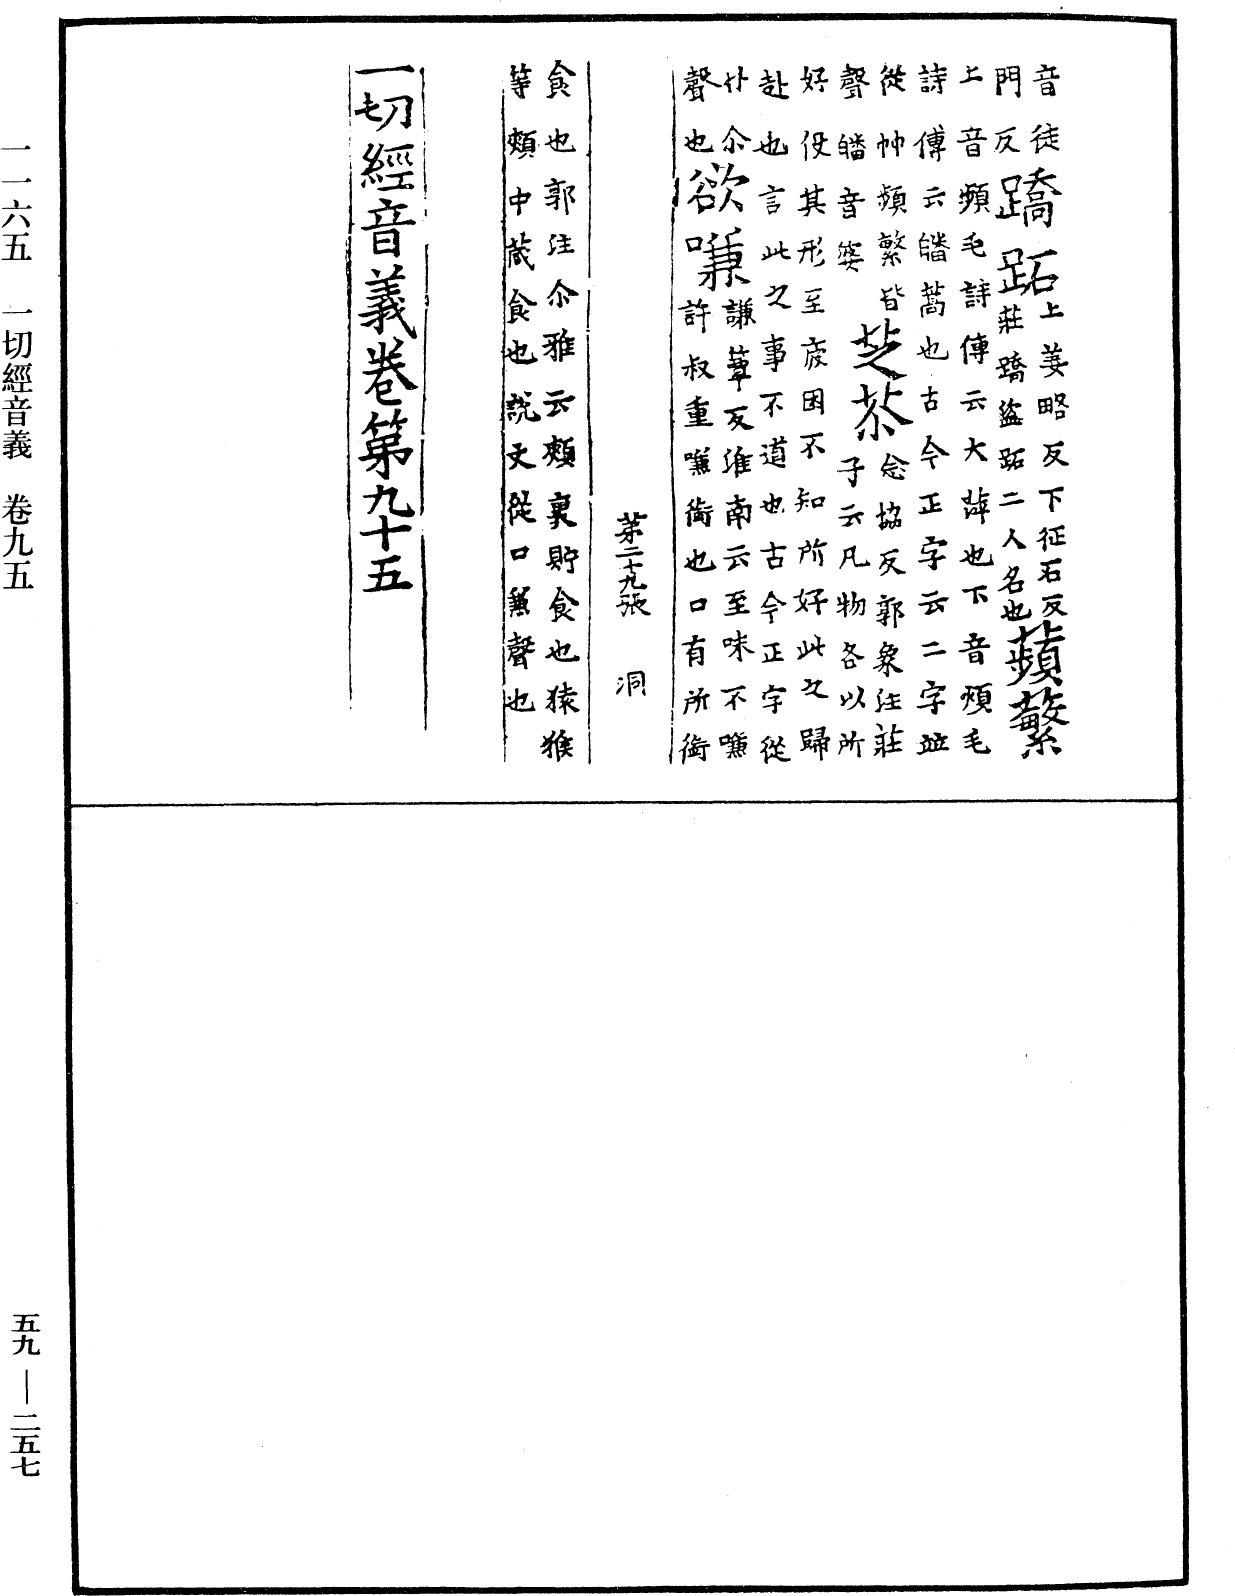 音徒
門反
蹻跖
上姜略反下征石反
莊蹻盜跖二人名也
蘋蘩
上音頻毛詩傳云大蓱也下音煩毛
詩傳云皤蒿也古今正字云二字並
從艸頻繁皆
聲皤音婆
芝苶
念協反郭象注莊
子云凡物各以所
好役其形至疲困不知所好此之歸
赴也言此之事不道也古今正字從
艸尒
聲也
欲嗛
謙葦反淮南云至味不嗛
許叔重嗛銜也口有所銜
第二十九張 洞
食也郭注尒雅云頰裏貯食也猿猴
等頰中藏食也說文從口兼聲也
一切經音義卷第九十五
一一六五 一切經音義 卷九五
五九—二五七